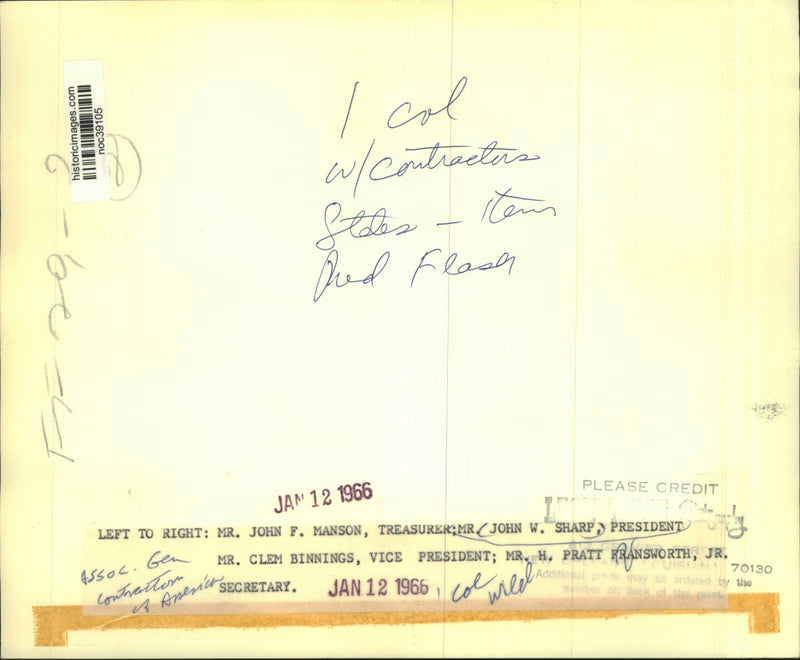 historicimages.com
noc39105
2
F-29-
1 col
w/contractors
States - Item
Red Flash
JAN 12 1966
PLEASE CREDIT
LEFT TO RIGHT: MR. JOHN F. MANSON, TREASURER; MR. JOHN W. SHARP, PRESIDENT
MR. CLEM BINNINGS, VICE PRESIDENT; MR. H. PRATT FRANSWORTH, JR.
SECRETARY.
70130
Additional prints may be ordered by the
number on back of this print.
Assoc. Gen
contractors
of America
JAN 12 1966
1 col wild